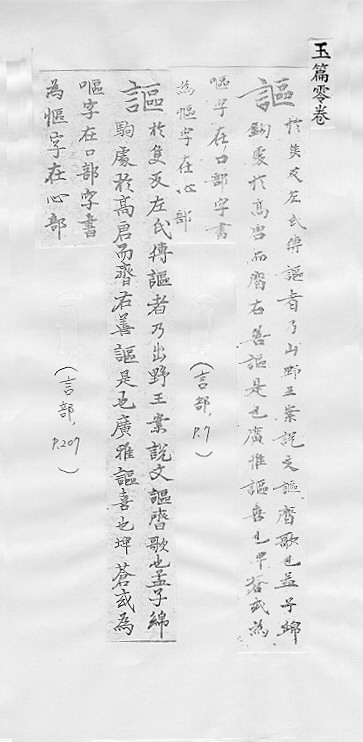 玉篇零卷
謳 於矦反左氏傳謳者乃出野王案說文謳齊歌也孟子綿
駒處於高唐而齊右善謳是也廣雅謳喜也埤蒼或為
嘔字在口部字書
為慪字在心部
(言部, P.7)
謳 於隻反左氏傳謳者乃出野王案說文謳齊歌也孟子綿
駒處於高唐而齊右善謳是也廣雅謳喜也埤蒼或為
嘔字在口部字書
為慪字在心部
(言部, P.207)